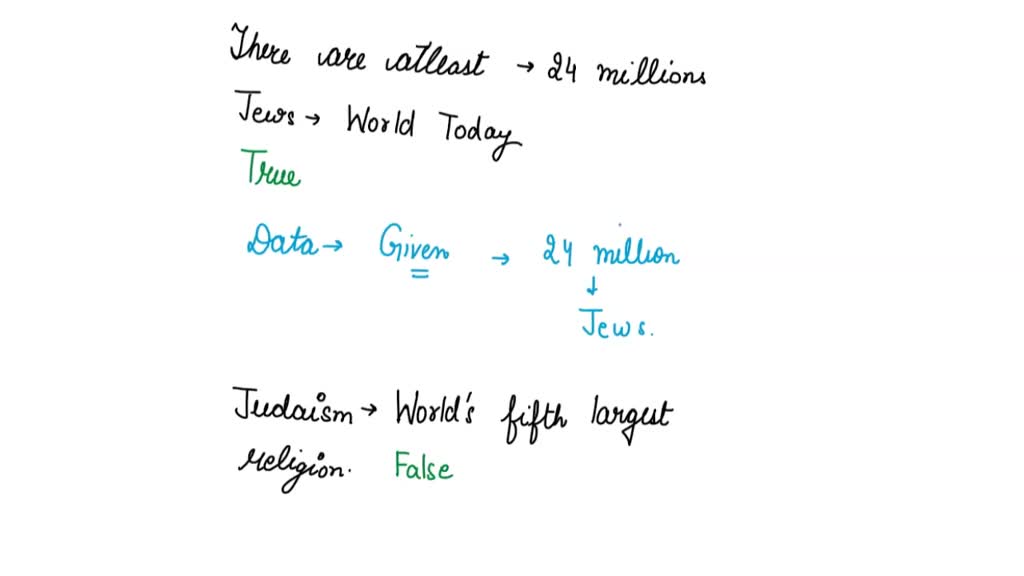 There are atleast → 24 millions
Jews → World Today
True
Data → Given → 24 million
↓
Jews.
Judaism → World's fifth largest
religion. False